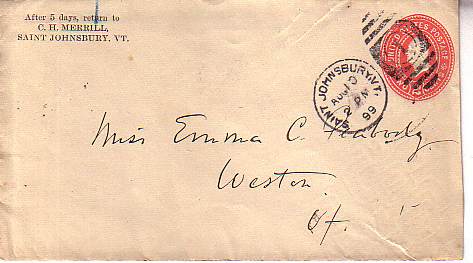 After 5 days, return to
C. H. MERRILL,
SAINT JOHNSBURY, VT.
UNITED STATES POSTAGE
SAINT JOHNSBURY, VT.
AUG
2 PM
99
Miss Emma C. Peabody
Weston
Vt.